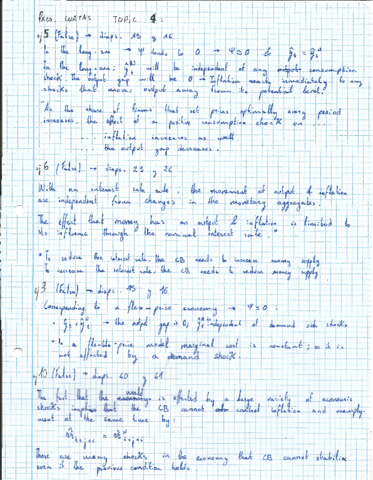 PREG. CORTAS TOPIC 4:
5 (False) → diaps. 15 y 16
In the long-run → Ψ tends to 0 → Ψ=0 &
In the long-run: will be independent of any consumption
shock. The output gap will be 0 → Inflation reacts immediately to any
shocks that moves output away from its potential level.
"As the share of firms that set prices optimally every period
increases, the effect of a positive consumption shock on ...
... inflation increases as well
... the output gap decreases.
6 (False) → diaps. 25 y 26
With an interest rate rule, the movement of output & inflation
are independent from changes in the monetary aggregates.
The effect that money has on output & inflation is limited to
its influence through the nominal interest rate."
* To reduce the interest rate, the CB needs to increase money supply
To increase the interest rate, the CB needs to reduce money supply
3 (False) → diap. 15 y 16
Corresponding to a flex-price economy → Ψ=0 :
→ the output gap is 0, independent of demand side shocks
* In a flexible-price model marginal cost is constant; so it is
not affected by a demand shock.
10 (False) → diaps. 60 y 61
The fact that the is affected by a large variety of economic
shocks implies that the CB cannot control inflation and unemploy-
ment at the same time by
There are many shocks in the economy that CB cannot stabilize
even if the previous condition holds.